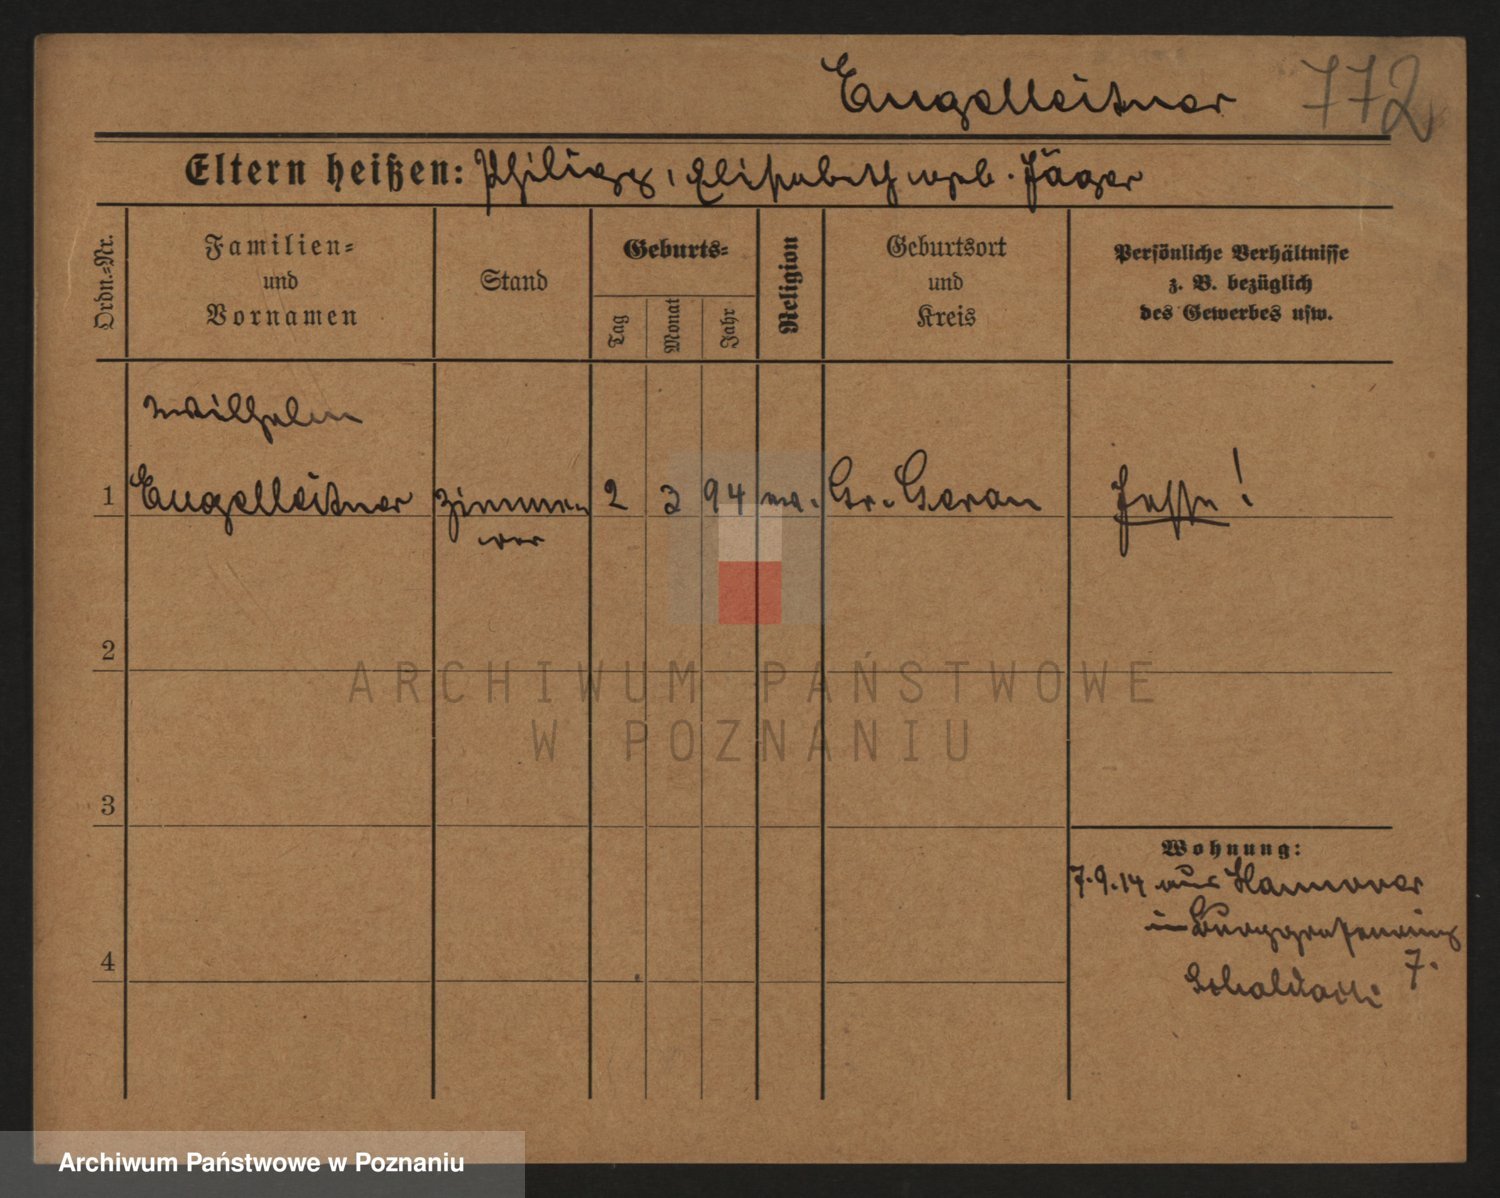 Engelleitner 772
Eltern heißen: Philipp, Elisabeth geb. Jäger
Ordn.=Nr.
Familien=
und
Vornamen
Stand
Geburts=
Tag
Monat
Jahr
Religion
Geburtsort
und
Kreis
Persönliche Verhältnisse
z. B. bezüglich
des Gewerbes usw.
Wilhelm
1 Engelleitner Zimmer 2 3 94 ev. Gr. Gerau Hesse!
2
3
4
ARCHIWUM PAŃSTWOWE
W POZNANIU
Wohnung:
7.9.14 aus Hannover
in Burggrafenring
7.
Archiwum Państwowe w Poznaniu